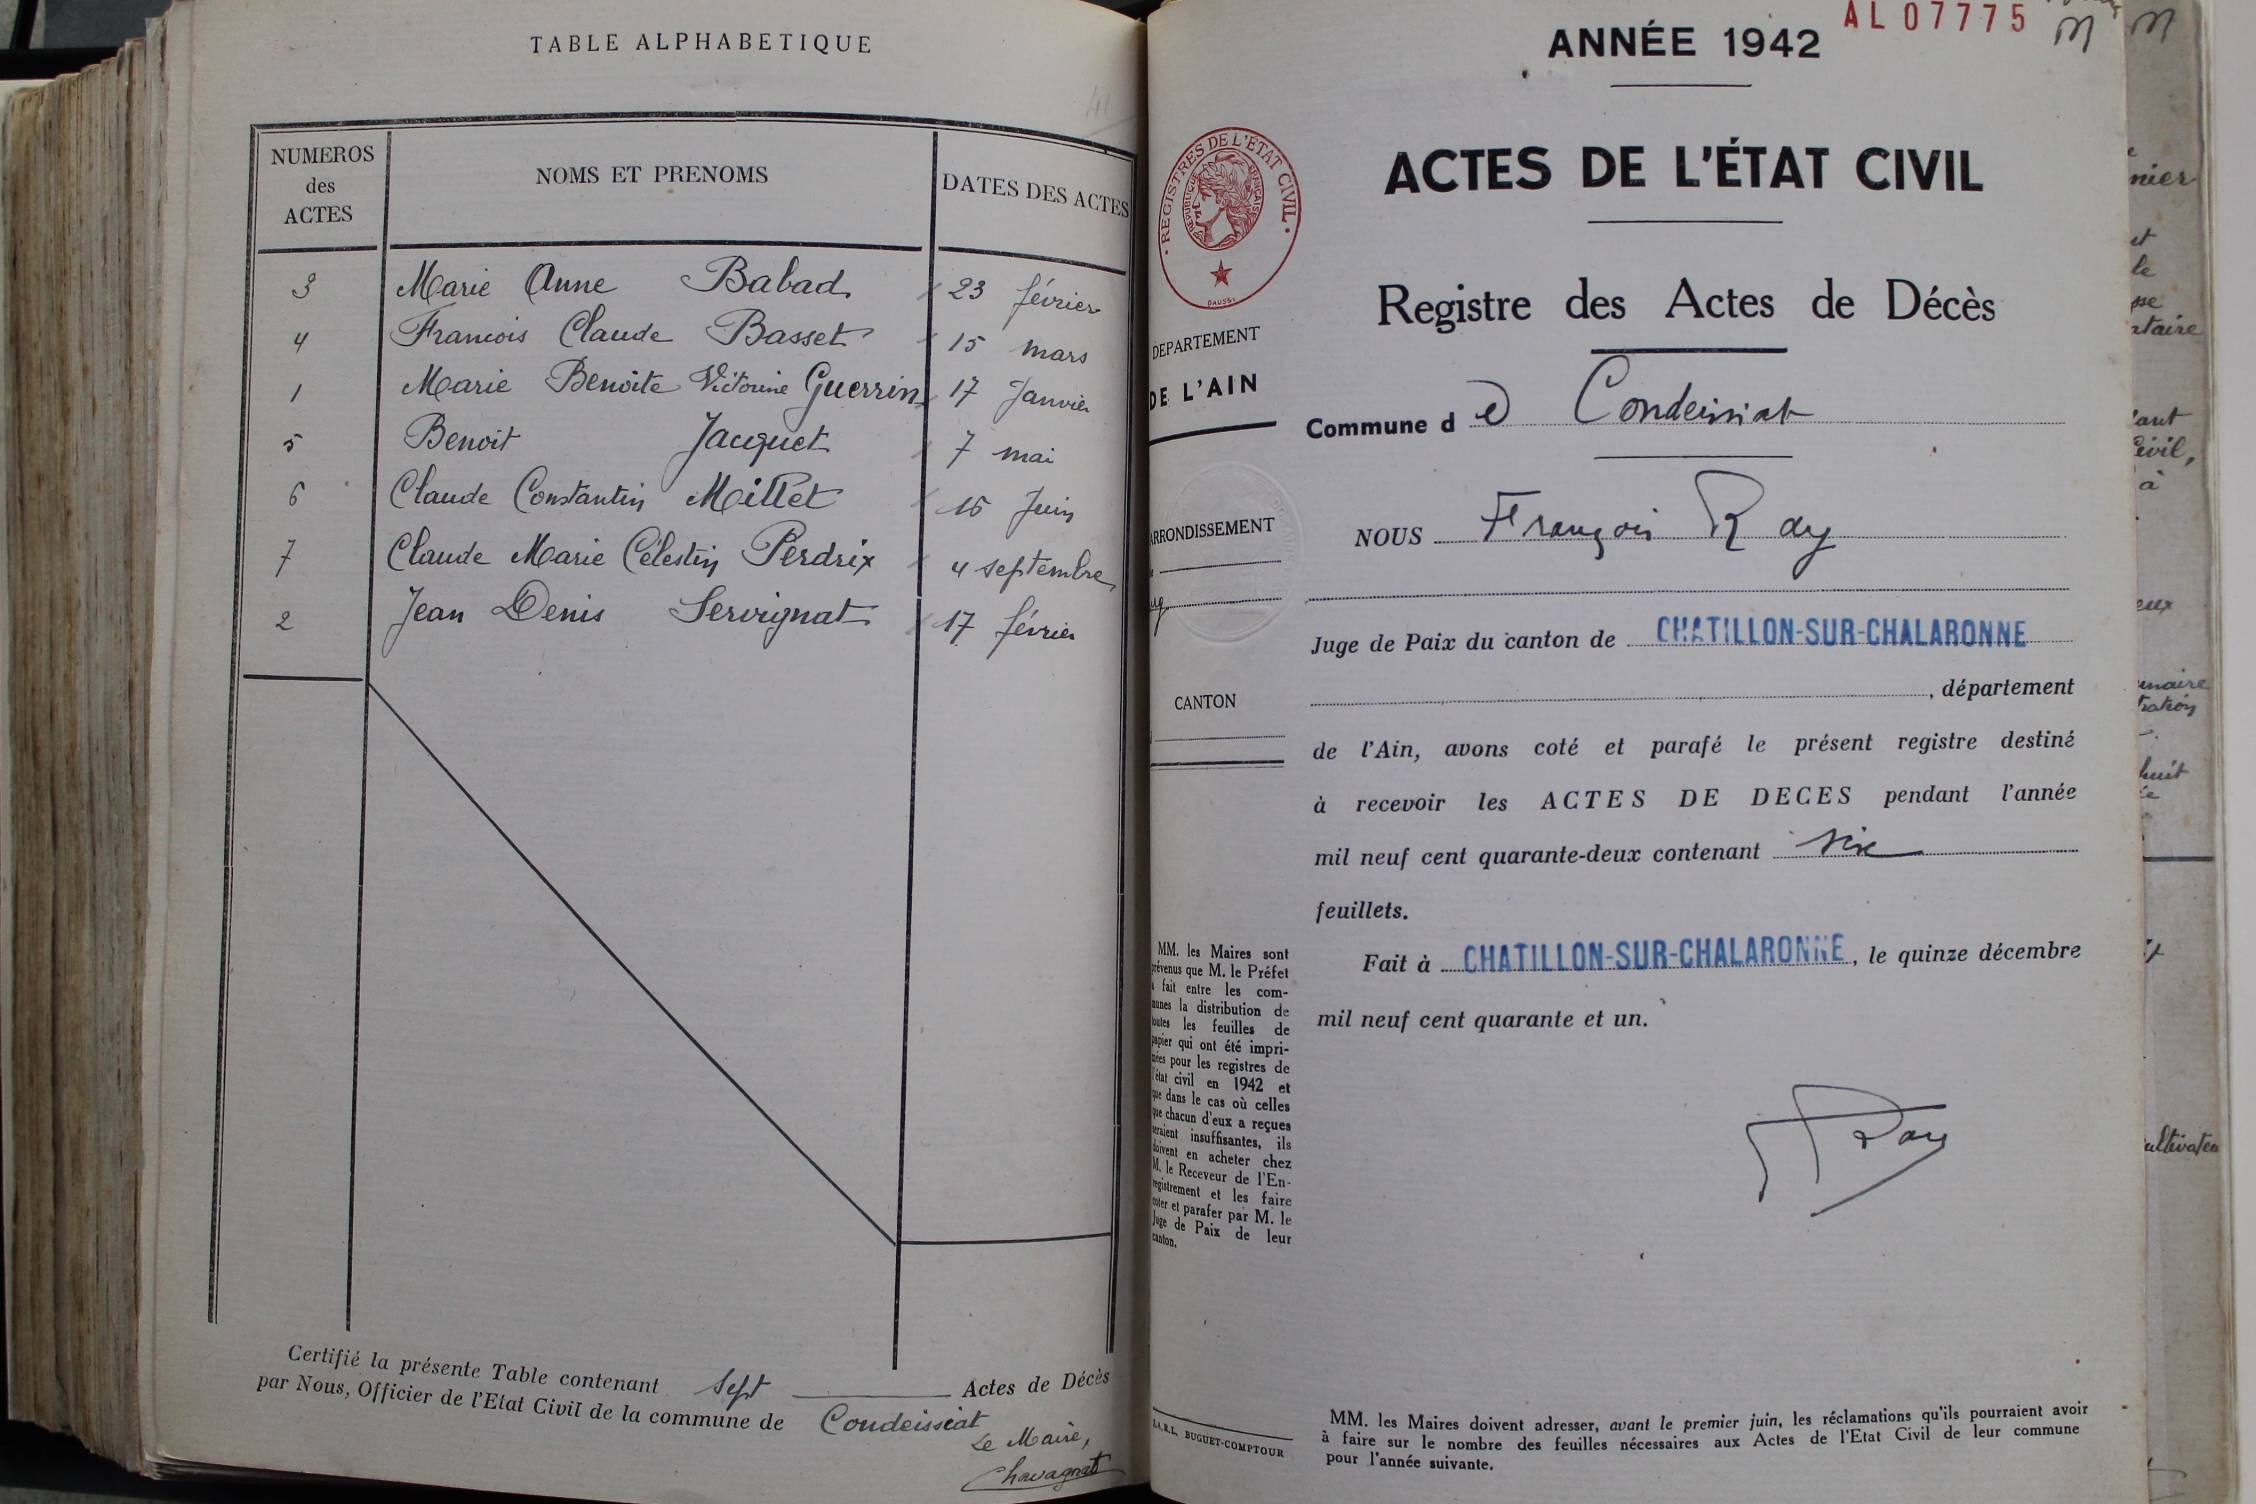 TABLE ALPHABETIQUE
NUMEROS des ACTES
NOMS ET PRENOMS
DATES DES ACTES
3 Marie Anne Babad 23 février
4 Francois Claude Basset 15 mars
1 Marie Benoite Victorine Guerrin 17 Janvier
5 Benoit Jacquet 7 mai
6 Claude Constantin Millet 16 Juin
7 Claude Marie Célestin Perdrix 4 septembre
2 Jean Denis Servignat 17 février
Certifié la présente Table contenant sept Actes de Décès
par Nous, Officier de l'Etat Civil de la commune de Condeissiat
Le Maire,
Chavagnat
AL07775
ANNÉE 1942
ACTES DE L'ÉTAT CIVIL
Registre des Actes de Décès
REGISTRES DE L'ÉTAT CIVIL
REPUBLIQUE FRANÇAISE
DAUSSY
DEPARTEMENT
DE L'AIN
ARRONDISSEMENT
CANTON
MM. les Maires sont
prévenus que M. le Préfet
a fait entre les com-
munes la distribution de
toutes les feuilles de
papier qui ont été impri-
mées pour les registres de
l'état civil en 1942 et
que dans le cas où celles
que chacun d'eux a reçues
seraient insuffisantes, ils
doivent en acheter chez
M. le Receveur de l'En-
registrement et les faire
coter et parafer par M. le
Juge de Paix de leur
canton.
BUGUET-COMPTOUR
Commune d e Condeissiat
NOUS François Ray
Juge de Paix du canton de CHATILLON-SUR-CHALARONNE
, département
de l'Ain, avons coté et parafé le présent registre destiné
à recevoir les ACTES DE DECES pendant l'année
mil neuf cent quarante-deux contenant six
feuillets.
Fait à CHATILLON-SUR-CHALARONNE, le quinze décembre
mil neuf cent quarante et un.
Ray
MM. les Maires doivent adresser, avant le premier juin, les réclamations qu'ils pourraient avoir
à faire sur le nombre des feuilles nécessaires aux Actes de l'Etat Civil de leur commune
pour l'année suivante.